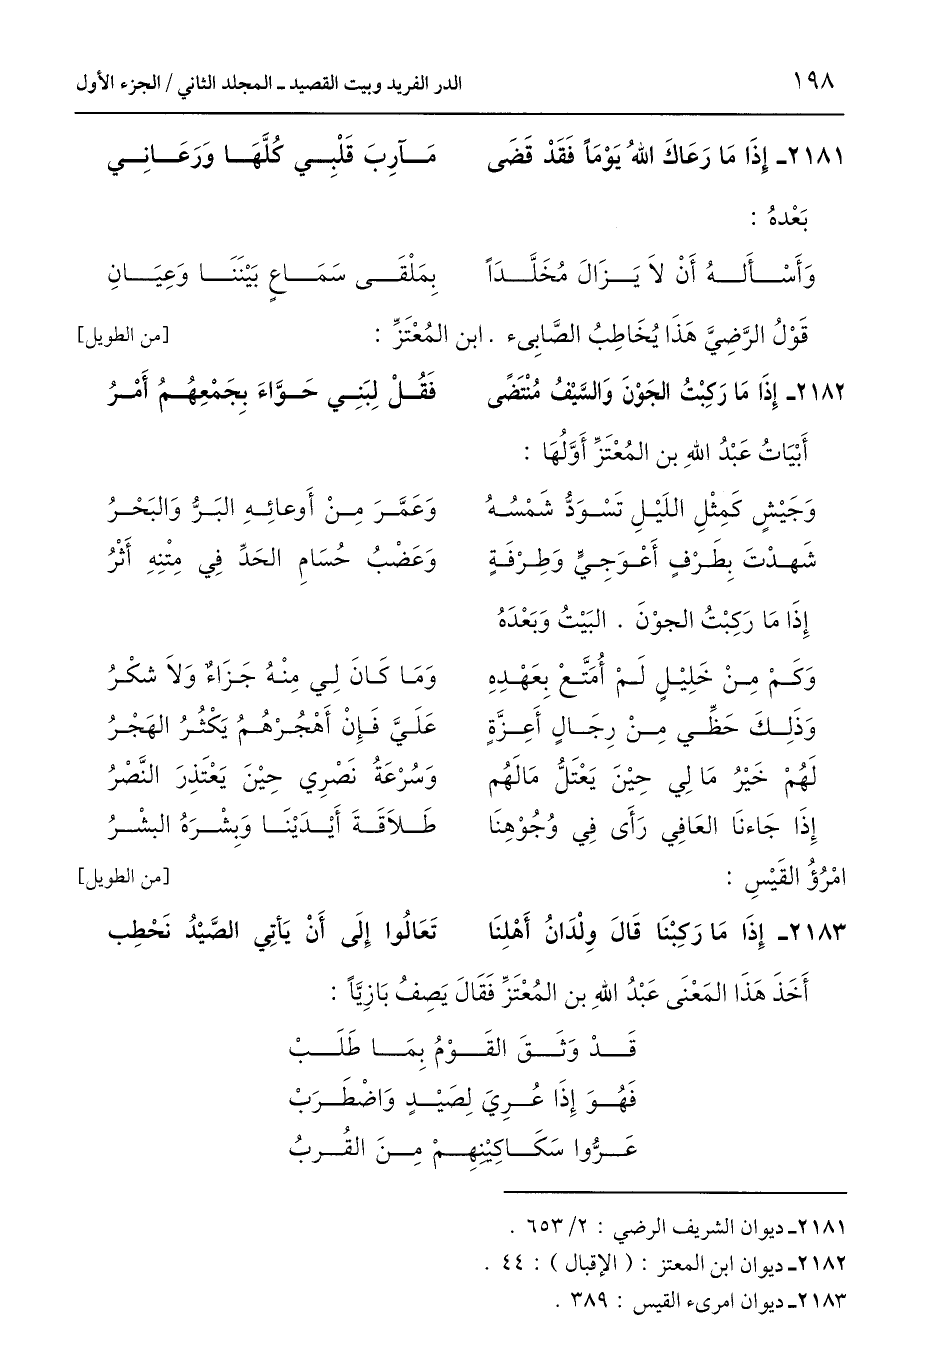 ١٩٨ الدر الفريد وبيت القصيد ـ المجلد الثاني / الجزء الأول
٢١٨١ـ إِذَا مَا رَعَاكَ اللهُ يَوْمَاً فَقَدْ قَضَى مَـآرِبَ قَلْبِـي كُلَّهَـا وَرَعَـانِـي
بَعْدهُ :
وَأَسْـأَلـهُ أَنْ لاَ يَـزَالَ مُخَلَّـدَاً بِمَلْقَـى سَمَـاعٍ بَيْنَنَـا وَعِيَـانِ
قَوْلُ الرَّضِيَّ هَذَا يُخَاطِبُ الصَّابِىء . ابن المُعْتَزِّ : [من الطويل]
٢١٨٢ـ إِذَا مَا رَكِبْتُ الجَوْنَ وَالسَّيْفُ مُنْتَضًى فَقُـلْ لِبَنِـي حَـوَّاءَ بِجَمْعِهُـمُ أَمْـرُ
أَبْيَاتُ عَبْدُ اللهِ بن المُعْتَزِّ أَوَّلُهَا :
وَجَيْشٍ كَمِثْلِ اللَّيْـلِ تَسْـوَدُّ شَمْسُـهُ وَعَمَّـرَ مِـنْ أَوعائِـهِ البَـرُّ وَالبَحْـرُ
شَهِـدْتَ بِطَـرْفٍ أَعْـوَجِـيٍّ وَطِـرْفَـةٍ وَعَضْبُ حُسَامِ الحَدِّ فِي مِتْنِهِ أَثْرُ
إِذَا مَا رَكِبْتُ الجوْنَ . البَيْتُ وَبَعْدَهُ
وَكَـمْ مِـنْ خَلِيْـلٍ لَـمْ أُمَتَّـعْ بِعَهْـدِهِ وَمَـا كَـانَ لِي مِنْهُ جَـزَاءٌ وَلاَ شكْـرُ
وَذَلِـكَ حَظِّـي مِـنْ رِجَـالٍ أَعِـزَّةٍ عَلَيَّ فَـإِنْ أَهْجُـرْهُـمُ يَكْثُـرُ الهَجْـرُ
لَهُمْ خَيْرُ مَا لِي حِيْنَ يَعْتَلُّ مَالَهُم وَسُرْعَةُ نَصْرِي حِيْنَ يَعْتَذِرَ النَّصْرُ
إِذَا جَاءنَا العَافِي رَأَى فِي وُجُوْهِنَا طَـلاَقَـةَ أَيْـدَيْنَـا وَبِشْـرَهُ البشْـرُ
امْرُؤُ القَيْسِ : [من الطويل]
٢١٨٣ـ إِذَا مَا رَكِبْنَا قَالَ وِلْدَانُ أَهْلنَا تَعَالُوا إِلَى أَنْ يَأتِي الصَّيْدُ نَحْطِب
أَخَذَ هَذَا المَعْنَى عَبْدُ اللهِ بن المُعْتَزِّ فَقَالَ يَصِفُ بَازِيَّاً :
قَـدْ وَثَـقَ القَـوْمُ بِمَـا طَلَـبْ
فَهُـوَ إِذَا عُـرِيَ لِصَيْـدٍ وَاضْطَـرَبْ
عَـرُّوا سَكَـاكِيْنِهِـمْ مِـنَ القُـربُ
٢١٨١ـ ديوان الشريف الرضي : ٢/ ٦٥٣ .
٢١٨٢ـ ديوان ابن المعتز : ( الإقبال ) : ٤٤ .
٢١٨٣ـ ديوان امرىء القيس : ٣٨٩ .